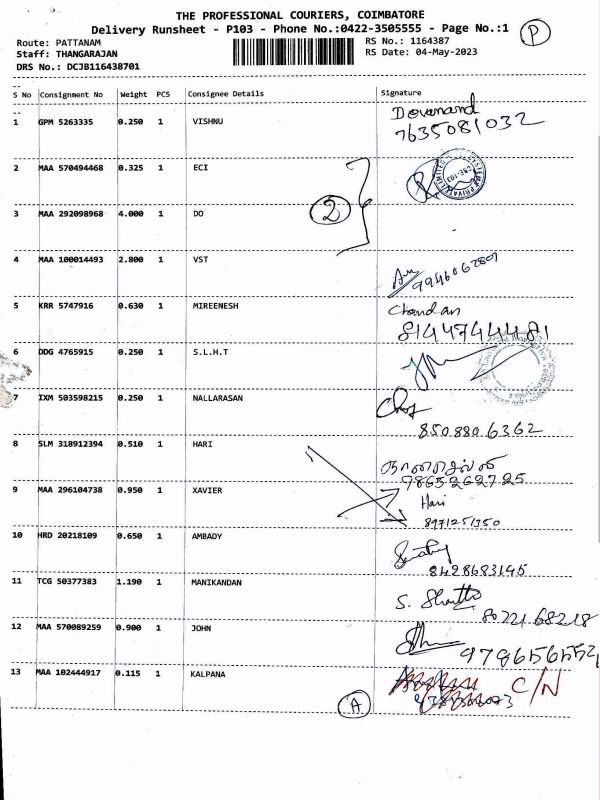 THE PROFESSIONAL COURIERS, COIMBATORE
Delivery Runsheet - P103 - Phone No.:0422-3505555 - Page No.:1 P
Route: PATTANAM RS No.: 1164387
Staff: THANGARAJAN RS Date: 04-May-2023
DRS No.: DCJB116438701
S No Consignment No Weight PCS Consignee Details Signature
1 GPM 5263335 0.250 1 VISHNU Devanand
7635081032
2 MAA 570494468 0.325 1 ECI
2
3 MAA 292098968 4.000 1 DO
4 MAA 100014493 2.800 1 VST
5 KRR 5747916 0.630 1 MIREENESH Chandan
8144744481
6 DDG 4765915 0.250 1 S.L.H.T
7 IXM 503598215 0.250 1 NALLARASAN
8508806362
8 SLM 318912394 0.510 1 HARI
9865262725
9 MAA 296104738 0.950 1 XAVIER Hari
8971251350
10 HRD 20218109 0.650 1 AMBADY
8428683145
11 TCG 50377383 1.190 1 MANIKANDAN S.
8022168218
12 MAA 570089259 0.900 1 JOHN
9786565552
13 MAA 102444917 0.115 1 KALPANA C/N
A